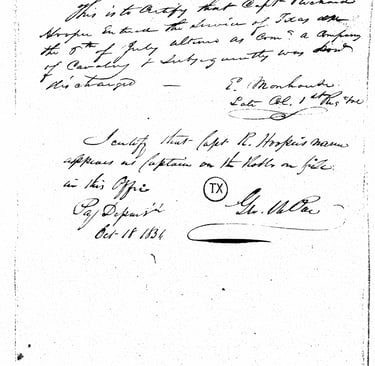 This is to Certify that Capt Richard
Hooper Entered the Service of Texas
the 5th of July ultimo as Comg a company
of Cavalry & Subsequently was
discharged —
E. Morehouse
Late Col. 1st Reg
I certify that Capt R. Hooper's name
appears as Captain on the Rolls on file
in this Office
TX
Pay Departmt
Oct 18 1836
Geo. W. Poe